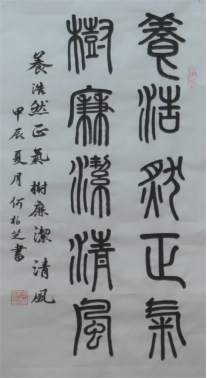 養浩然正氣
樹廉潔清風
養浩然正氣 樹廉潔清風
甲辰夏月何柏芝書